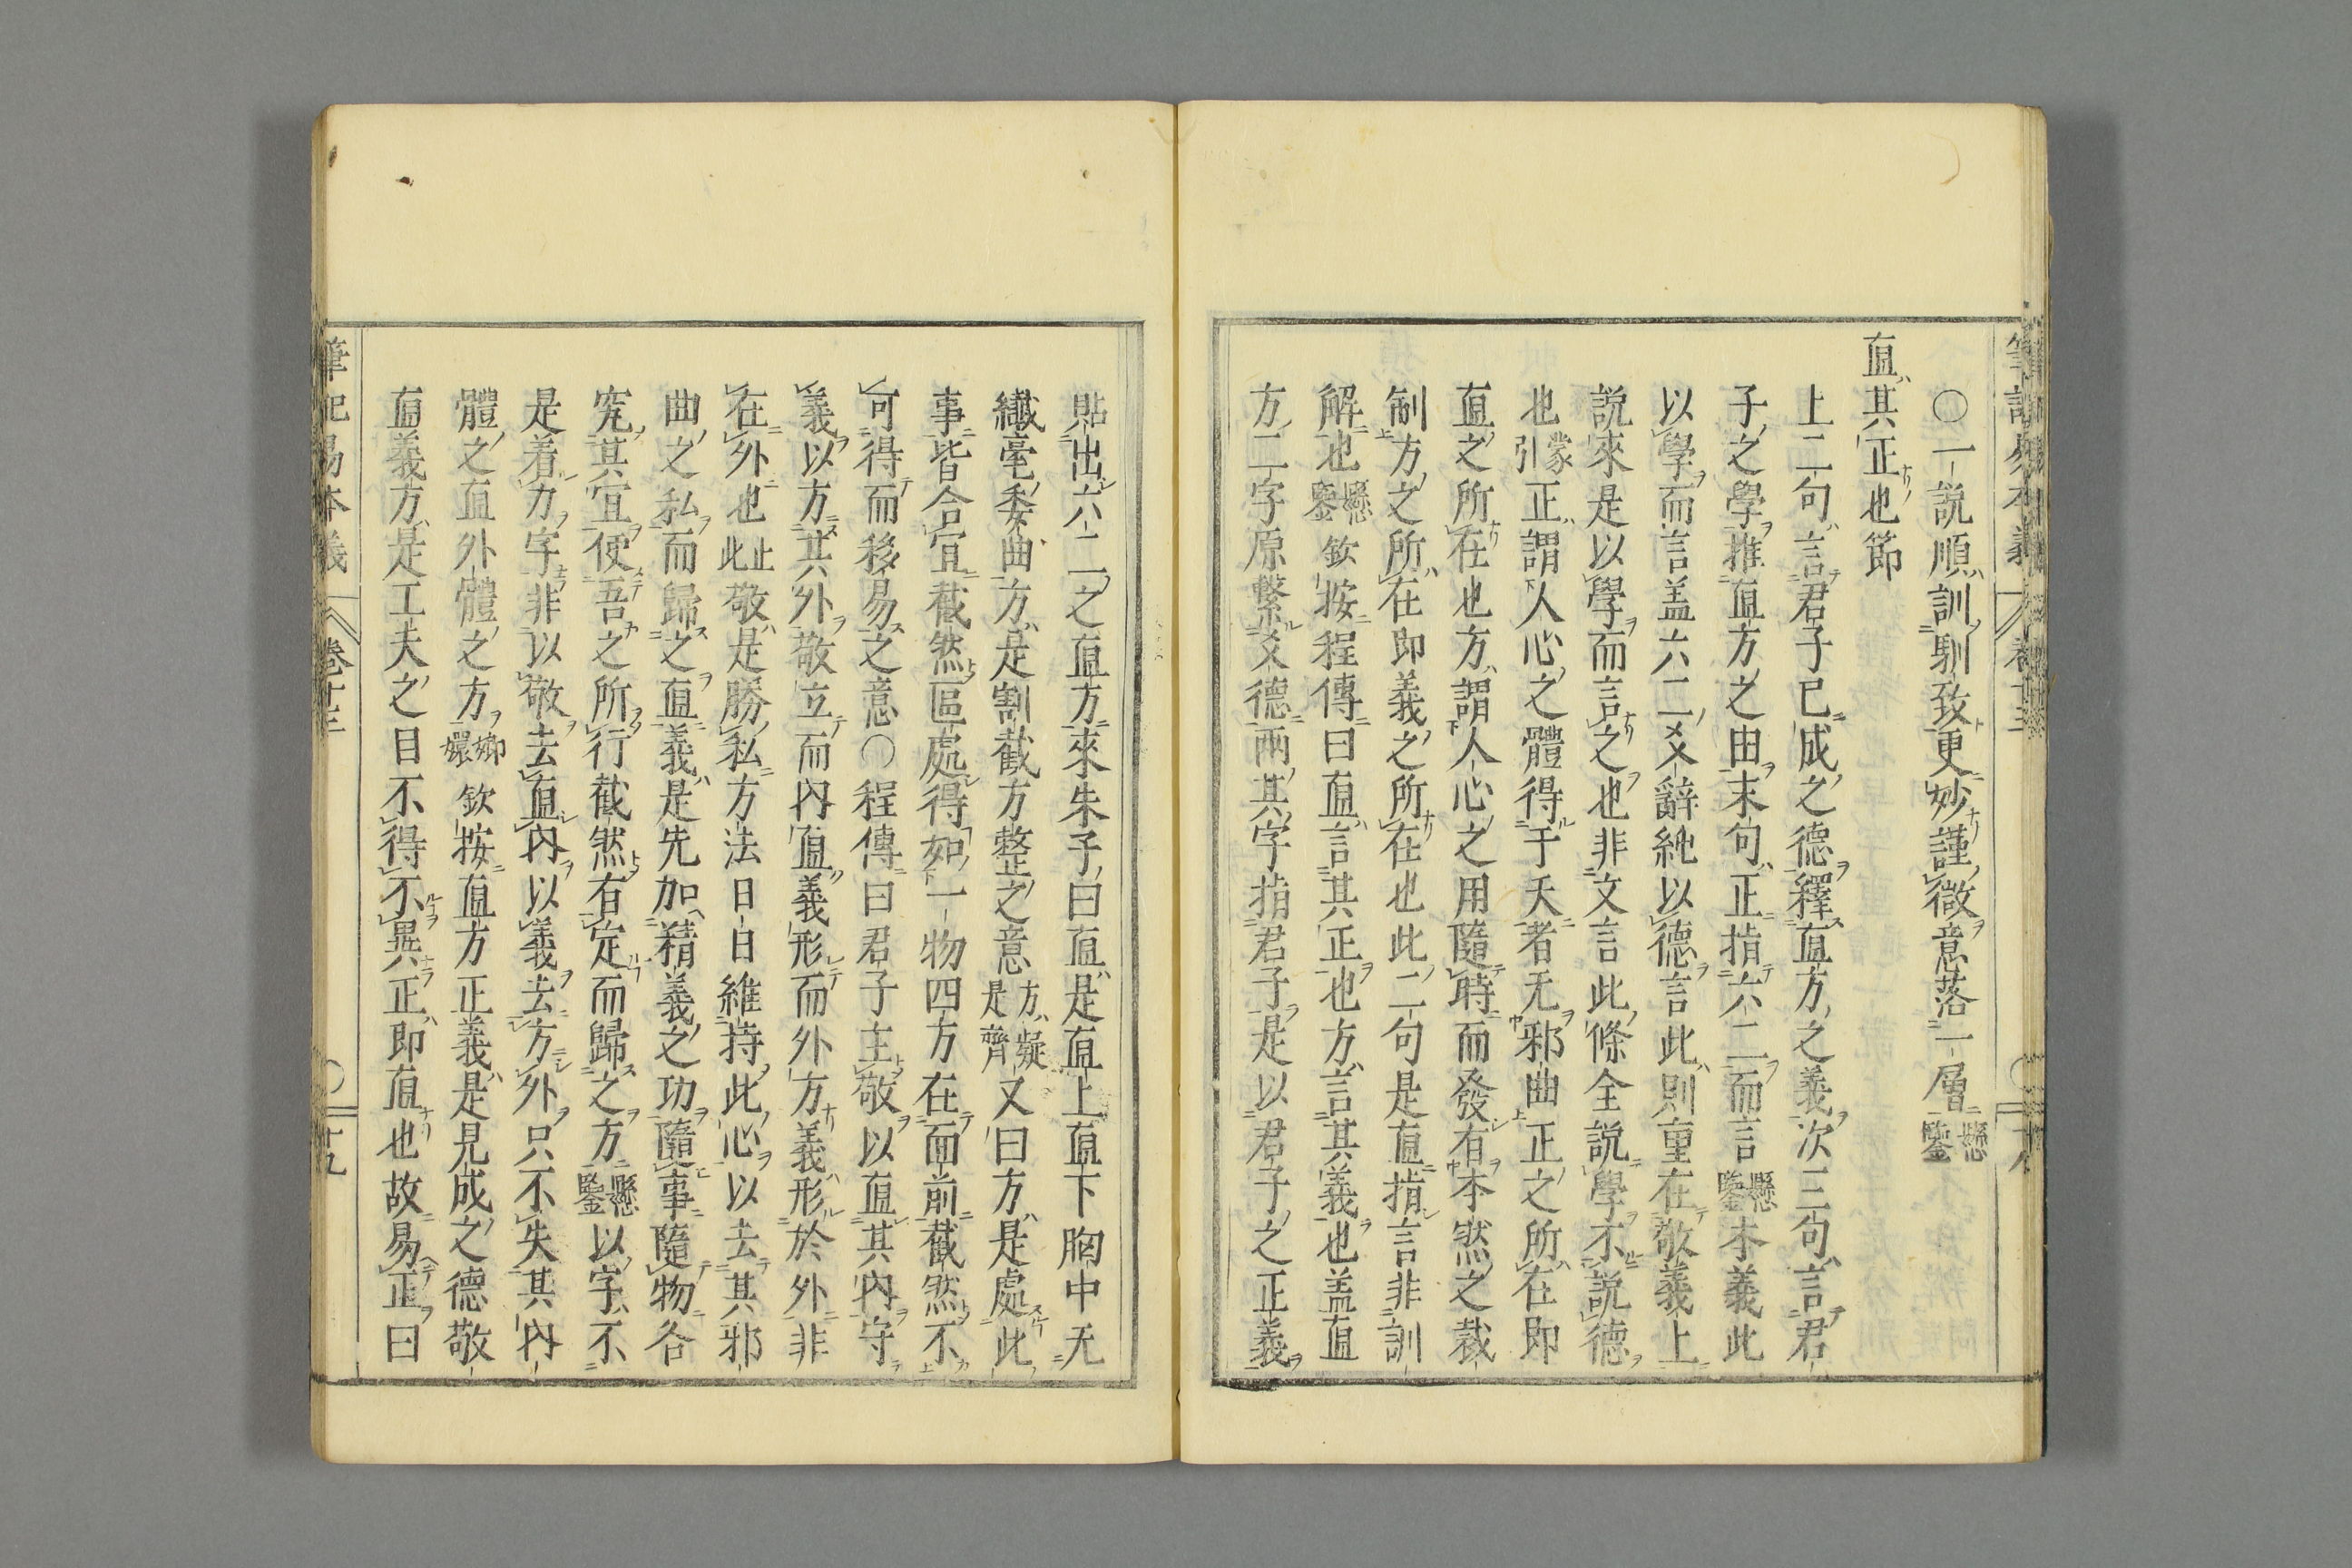 筆記易本義 卷十三 十八
〇一說順訓馴致更妙謹微意落一層懸鑒
直其正也節
上二句言君子已成之德釋直方之義次三句言君
子之學推直方之由末句正指六二而言懸鑒本義此
以學而言盖六二爻辭純以德言此則重在敬義上
說來是以學而言之也非文言此條全說學不說德
也蒙引正謂人心之體得于天者无邪曲正之所在即
直之所在也方謂人心之用隨時而發有本然之裁
制方之所在即義之所在也此二句是直指言非訓
解也懸鑒欽按程傳曰直言其正也方言其義也盖直
方二字原繫爻德兩其字指君子是以君子之正義
貼出六二之直方來朱子曰直是直上直下胸中无
纎毫委曲方是割截方整之意方疑是齊又曰方是處此
事皆合宜截然區處得如一物四方在面前截然不
可得而移易之意〇程傳曰君子主敬以直其內守
義以方其外敬立而內直義形而外方義形於外非
在外也止此敬是勝私方法日日維持此心以去其邪
曲之私而歸之直義是先加精義之功隨事隨物各
究其宜使吾之所行截然有定而歸之方懸鑒以字不
是着力字非以敬去直內以義去方外只不失其內
體之直外體之方嫏嬛欽按直方正義是見成之德敬
直義方是工夫之目不得不異正即直也故易正曰
筆記易本義 卷十三 十九